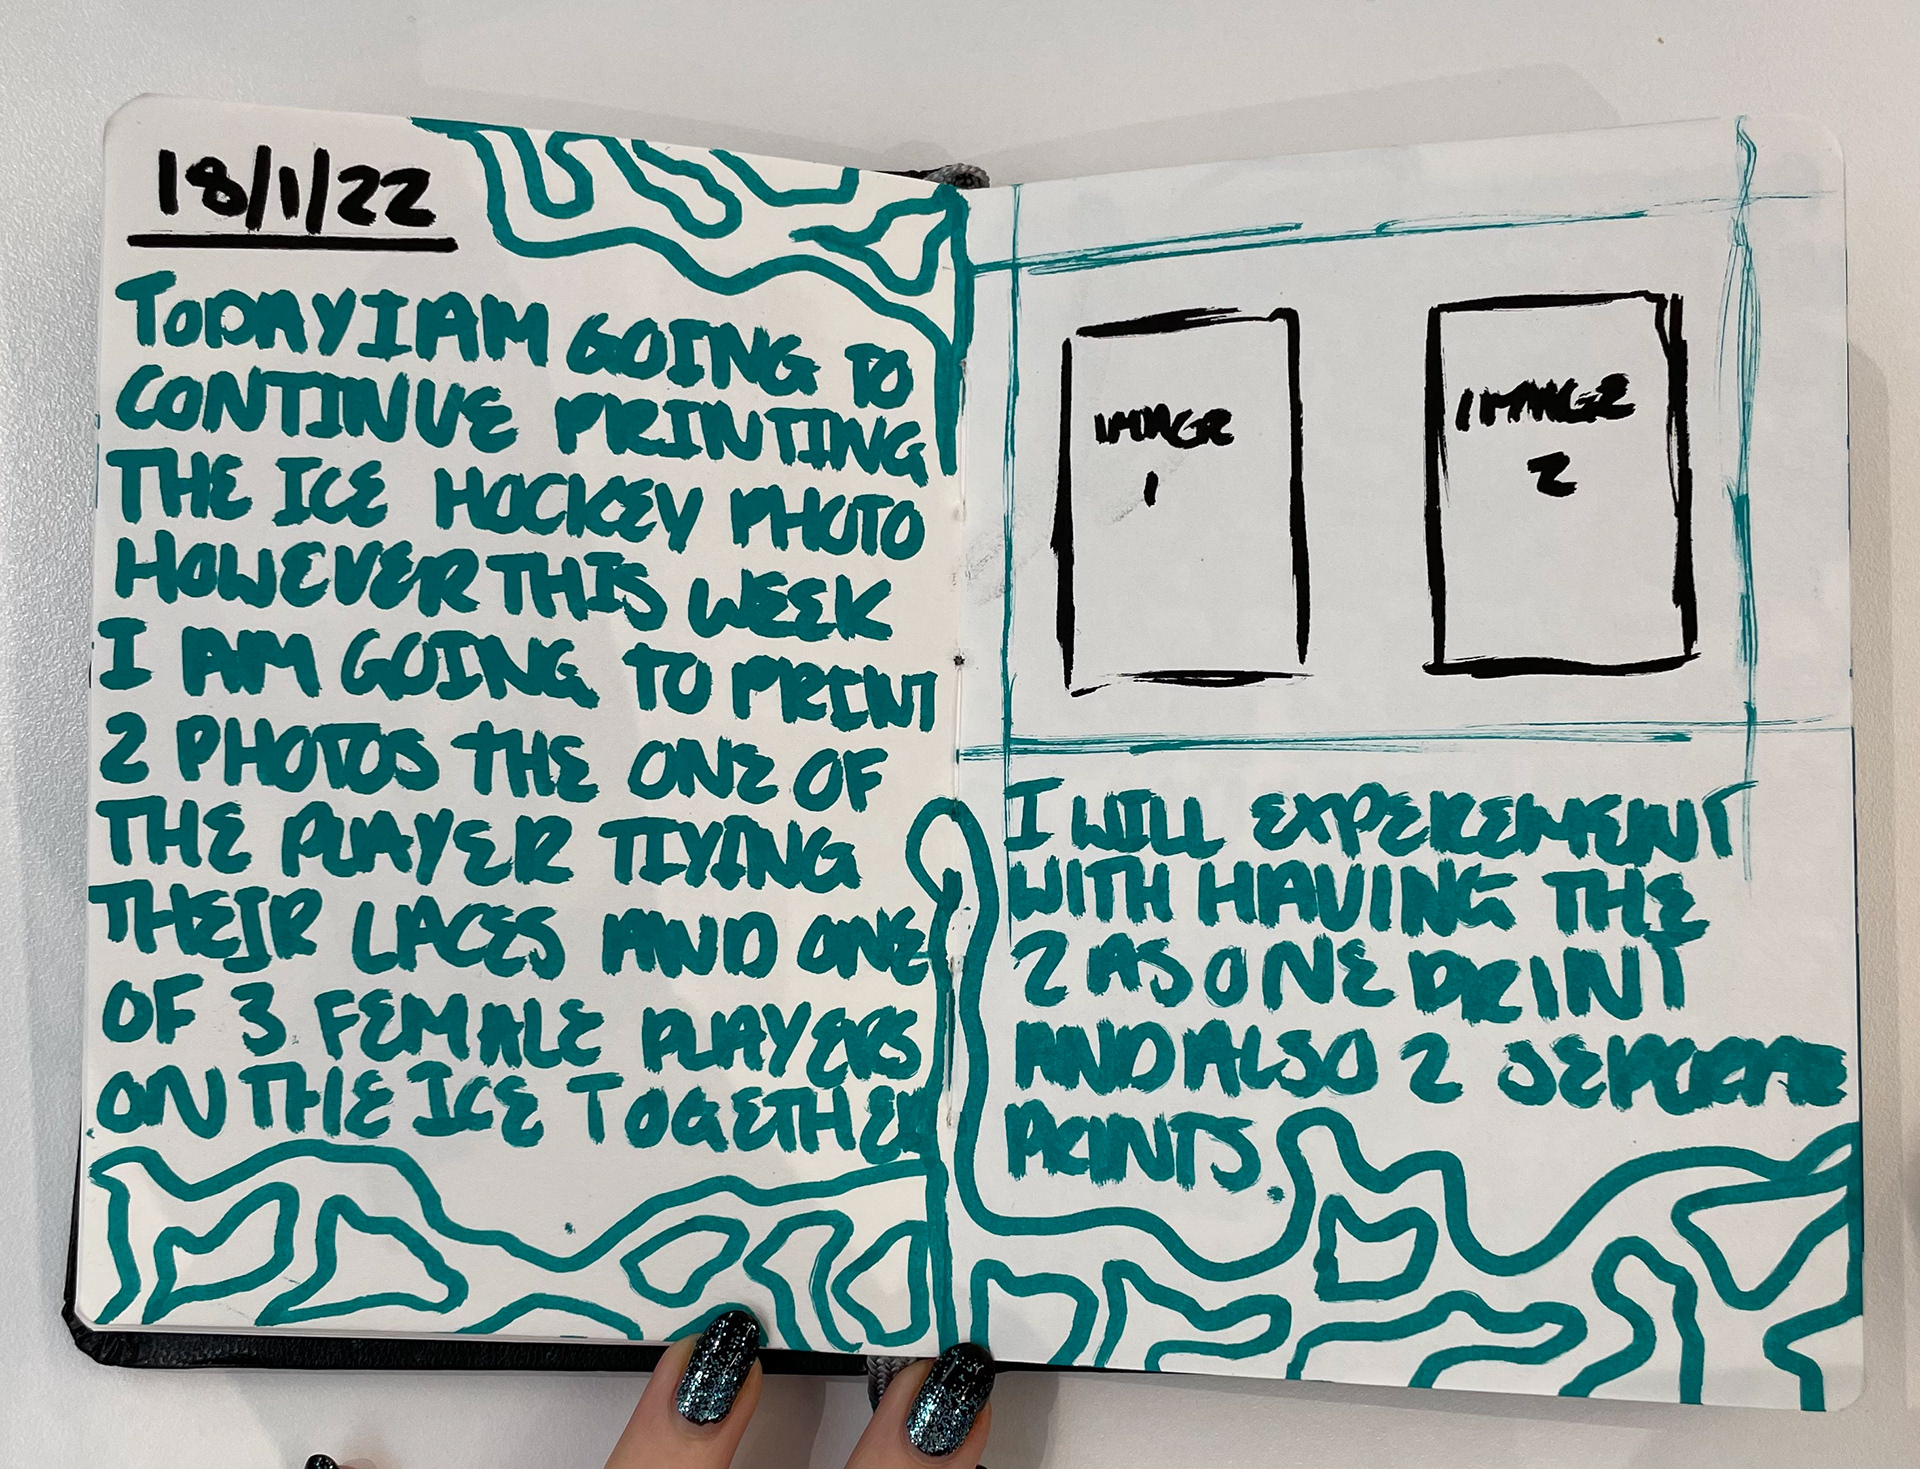 18/1/22
TODAY I AM GOING TO
CONTINUE PRINTING
THE ICE HOCKEY PHOTO
HOWEVER THIS WEEK
I AM GOING TO PRINT
2 PHOTOS THE ONE OF
THE PLAYER TIYING
THEIR LACES AND ONE
OF 3 FEMALE PLAYERS
ON THE ICE TOGETHER
IMAGE
1
IMAGE
2
I WILL EXPEREMENT
WITH HAVING THE
2 AS ONE PRINT
AND ALSO 2 SEPERATE
PRINTS.